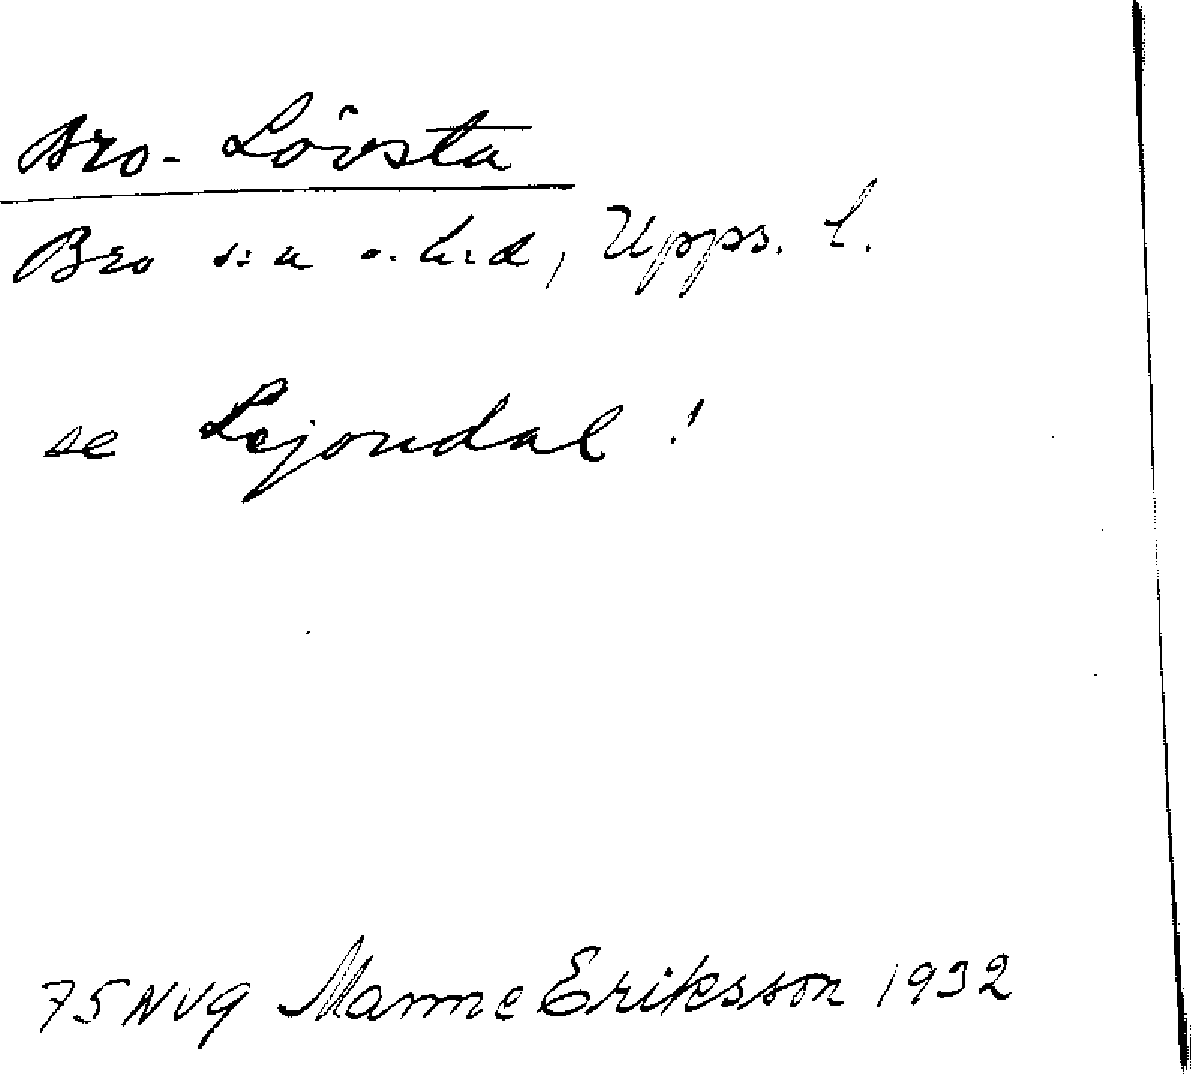 Bro-Lövsta
Bro s:n o. h:d, Upps. l.
se Lejondal!
75NVg Manne Eriksson 1932